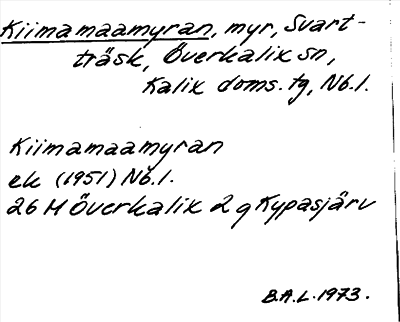 Kiimamaamyran, myr, Svart-
träsk, Överkalix sn,
Kalix doms. tg, Nb.l.
Kiimamaamyran
ek (1951) Nb.l.
26 M Överkalix 2 g Kypasjärv
B.A.L. 1973.